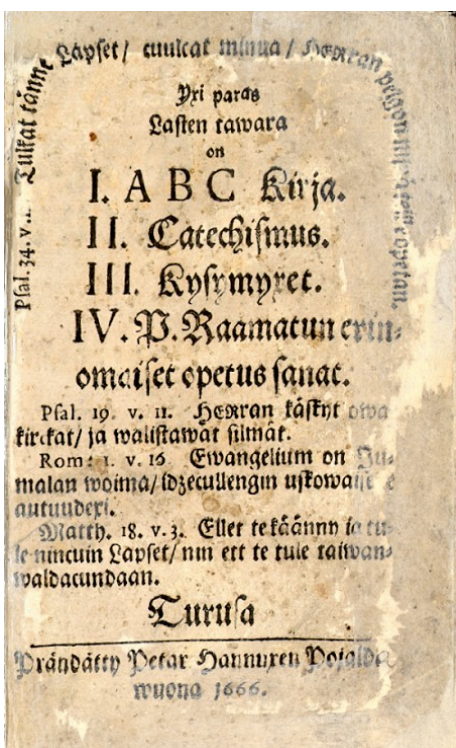 Psal. 34. v. Tulkat tänne Lapset/ cuulcat minua/ HERran pelgon minä teille opetan.
Yxi paras
Lasten tawara
on
I. A B C Kirja.
II. Catechismus.
III. Kysymyxet.
IV. P. Raamatun erin-
omaiset opetus sanat.
Psal. 19. v. 11. HERran käskyt owa
kirckat/ ja walistawat silmät.
Rom: 1. v. 16. Ewangelium on Ju-
malan woima/ idzecullengin uskowai
autuudexi.
Matth. 18. v. 3. Ellet te käänny ja tu-
le nincuin Lapset/ nin ett te tule taiwan-
waldacundaan.
Turusa
Prändätty Petar Hannuxen Pojalda
wuona 1666.